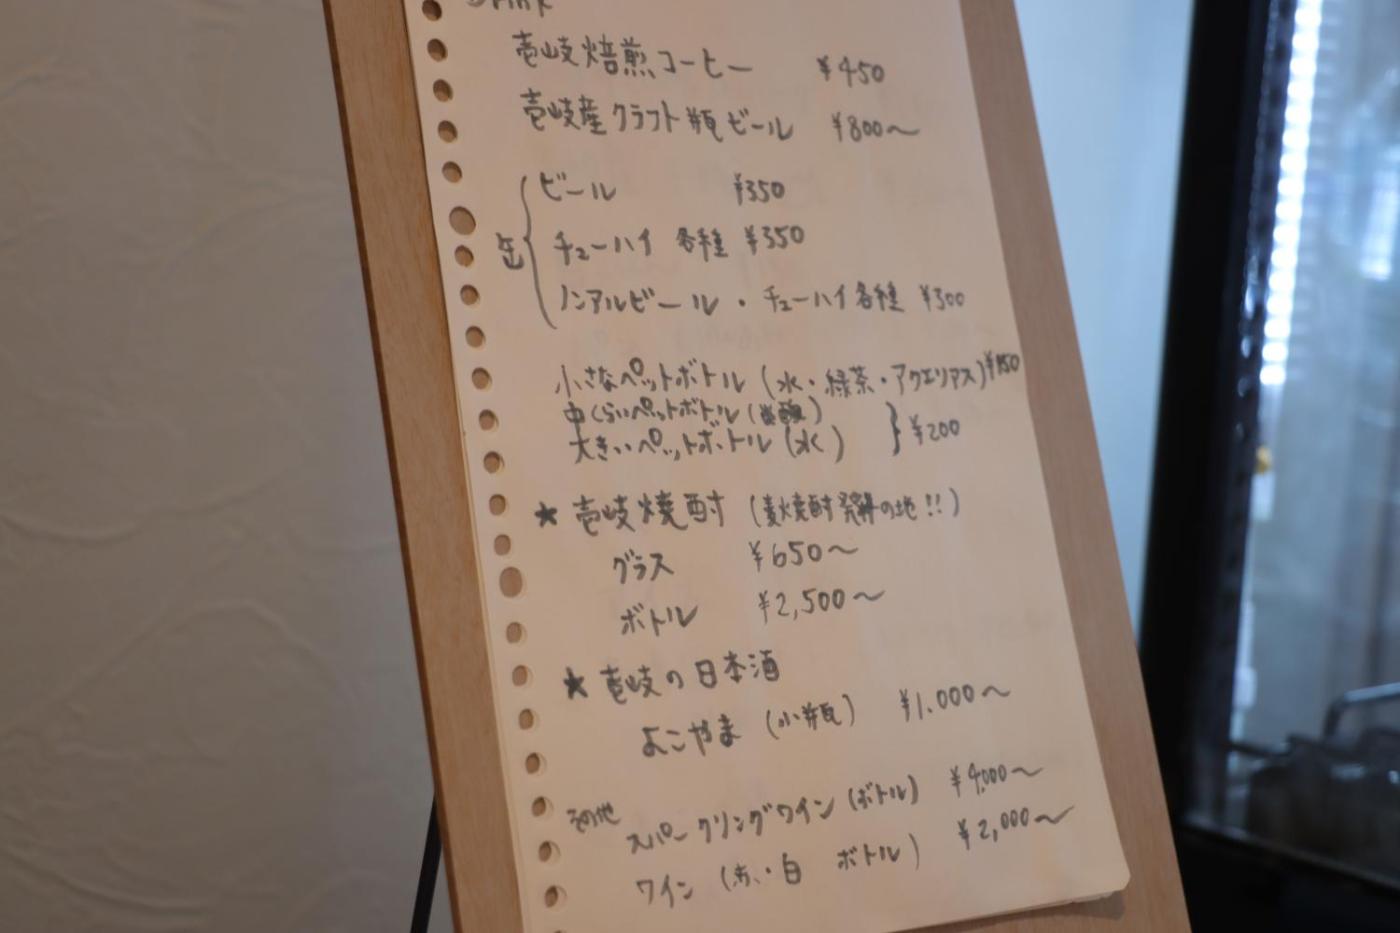 Drink
壱岐焙煎コーヒー ¥450
壱岐産クラフト瓶ビール ¥800〜
缶
ビール ¥350
チューハイ 各種 ¥350
ノンアルビール・チューハイ各種 ¥300
小さなペットボトル (水・緑茶・アクエリアス) ¥150
中くらいペットボトル (炭酸)
大きいペットボトル (水) } ¥200
★ 壱岐焼酎 (麦焼酎発祥の地!!)
グラス ¥650〜
ボトル ¥2,500〜
★ 壱岐の日本酒
よこやま (小瓶) ¥1,000〜
その他
スパークリングワイン (ボトル) ¥4,000〜
ワイン (赤・白 ボトル) ¥2,000〜